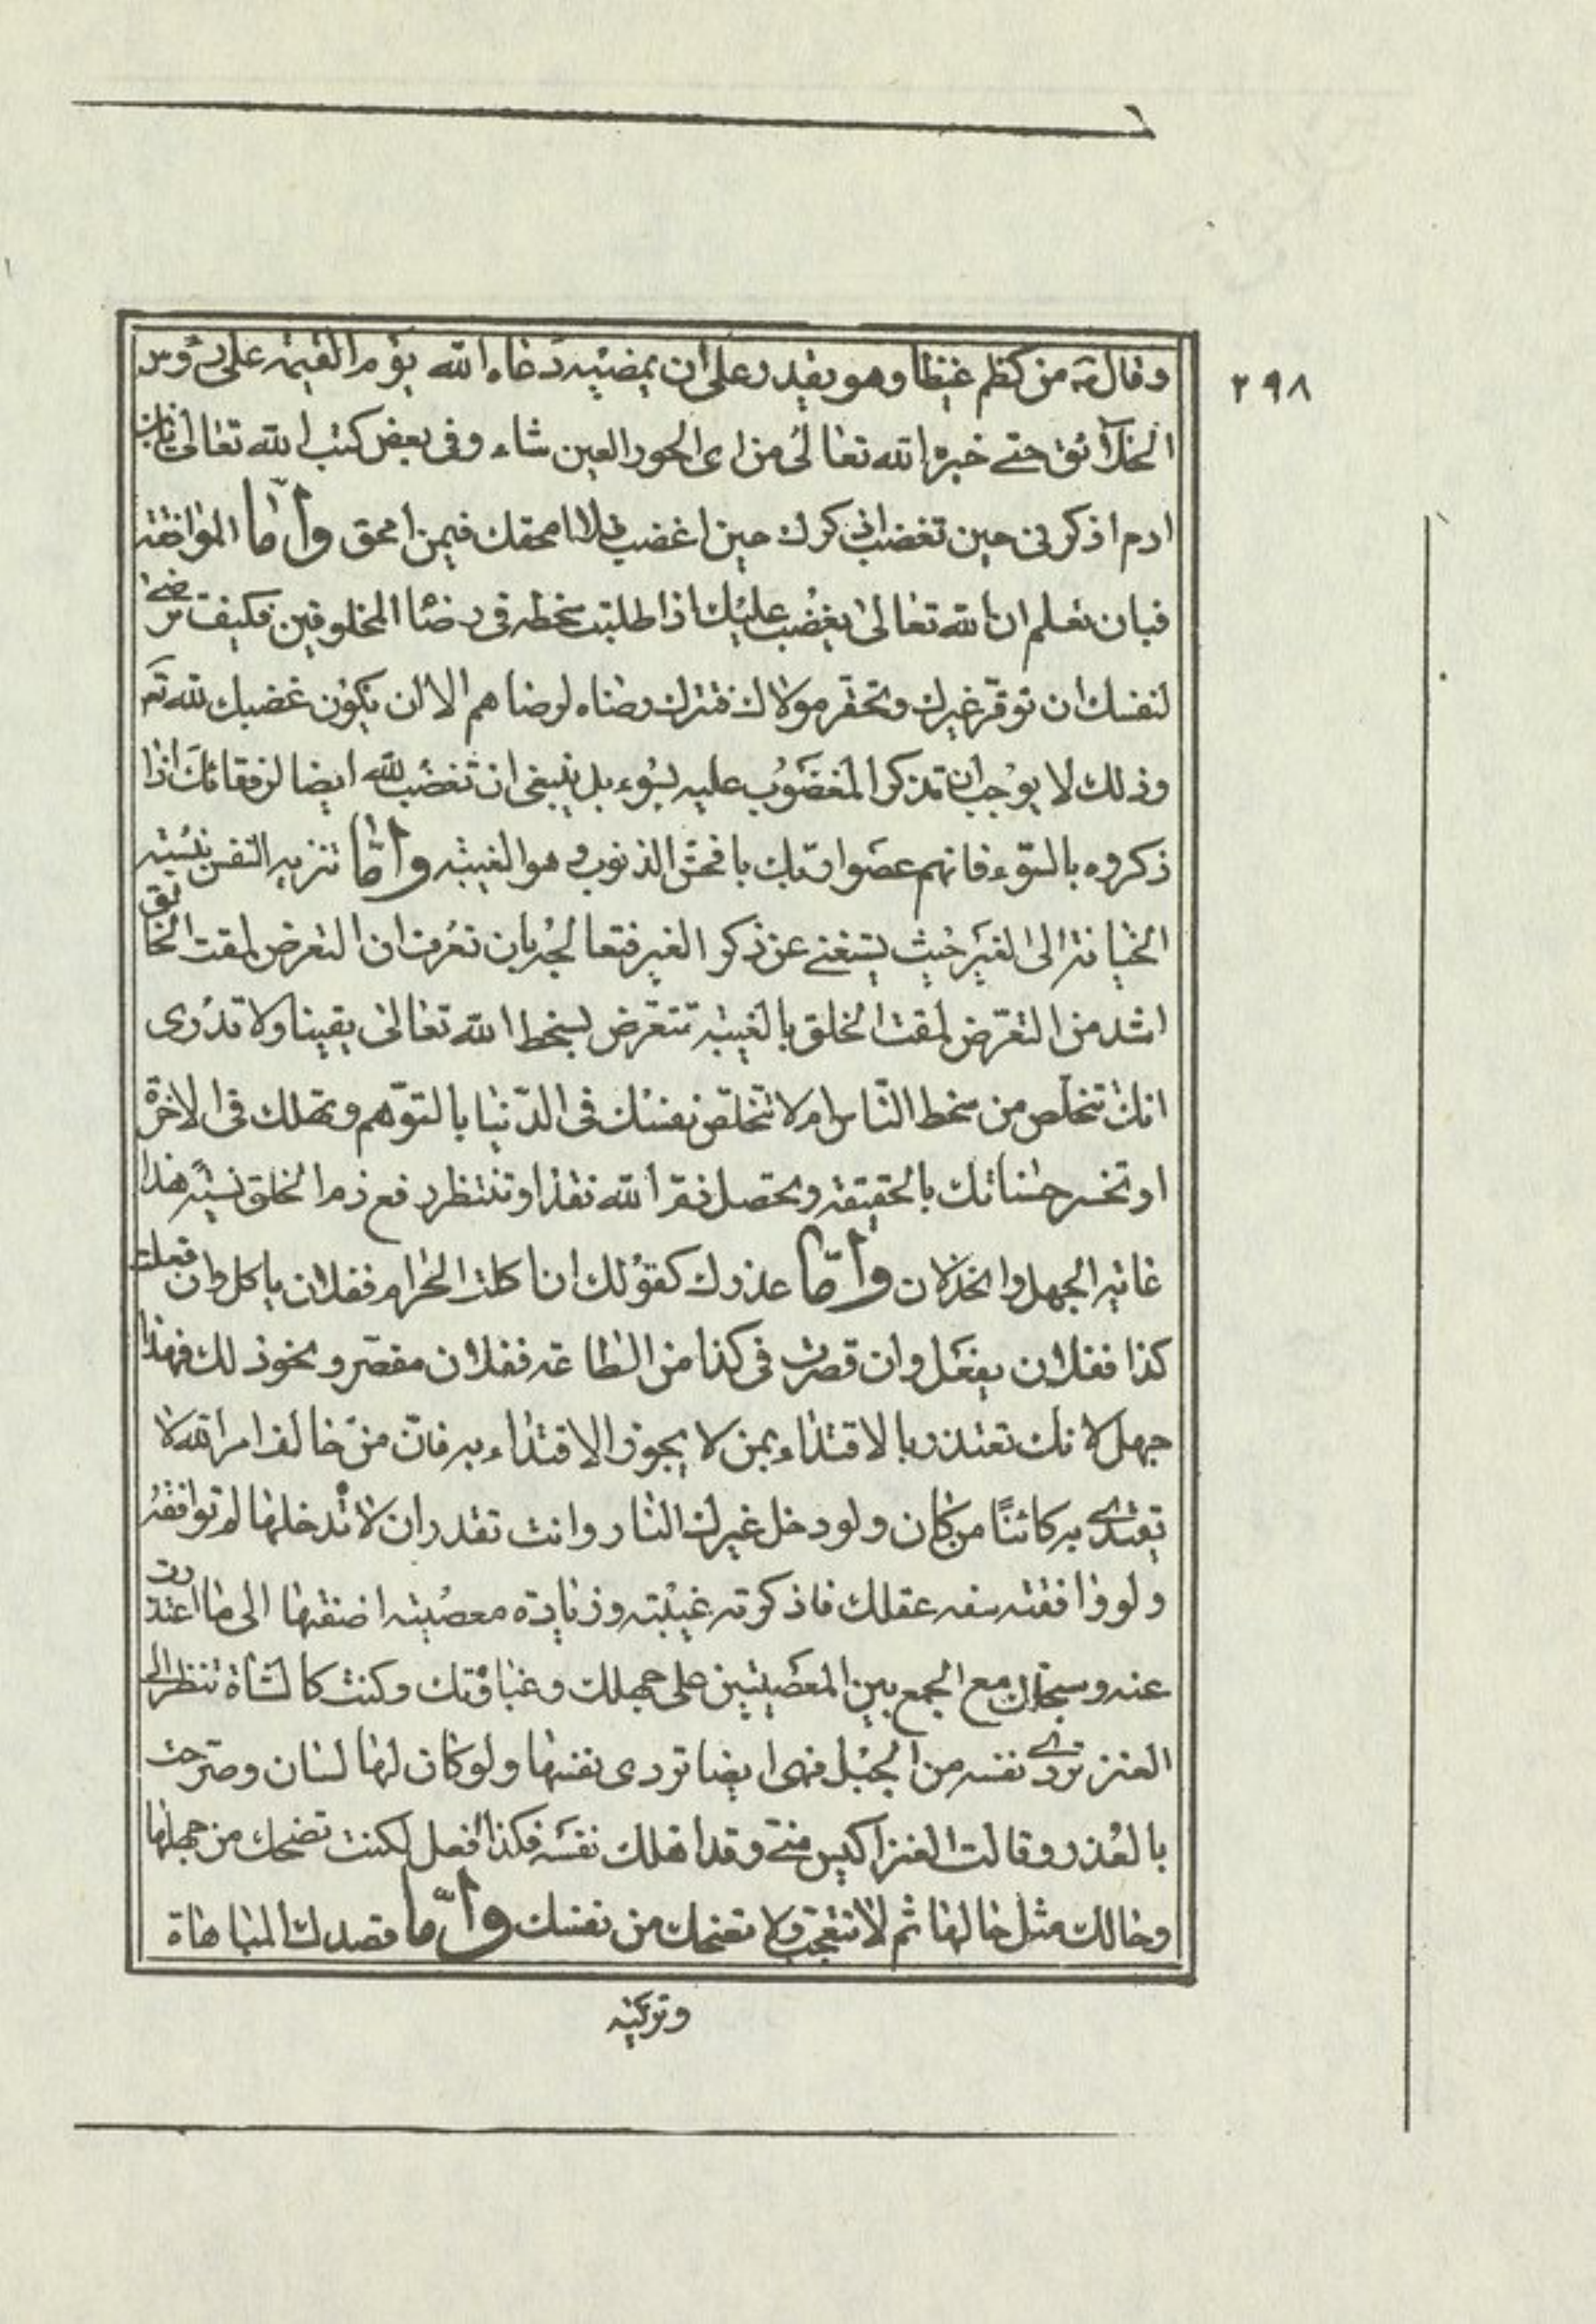 ٢٩٨
وقال ص من كظم غيظا وهو يقدر على ان يمضيه دعاه الله يوم القيمة على رؤس
الخلائق حتى خيره الله تعالى من اى الحور العين شاء وفى بعض كتب الله تعالى يابن
ادم اذكرنى حين تغضب اذكرك حين اغضب فلا امحقك فيمن امحق واما الموافقة
فبان تعلم ان الله تعالى يغضب عليك اذا طلبت سخطه فى رضا المخلوقين فكيف ترضى
لنفسك ان توقر غيرك وتحقر مولاك فتترك رضاه لرضاهم الا ان يكون غضبك لله تع
وذلك لا يوجب ان تذكر المغضوب عليه بسوء بل ينبغى ان تغضب لله ايضا لرفقائك اذا
ذكروه بالسوء فانهم عصوا ربك بافحش الذنوب وهو الغيبة واما تنزيه النفس بنسبة
الخيانة الى الغير حيث يستغنى عن ذكر الغير فتعالجه بان تعرف ان التعرض لمقت الخالق
اشد من التعرض لمقت الخلق بالغيبة تتعرض لسخط الله تعالى يقينا ولا تدرى
انك تتخلص من سخط الناس ام لا تتخلص نفسك فى الدنيا بالتوهم وتهلك فى الاخرة
او تخسر حسناتك بالحقيقة ويحصل ذم الله نقدا وتنتظر دفع ذم الخلق نسيئة هذا
غاية الجهل والخذلان واما عذرك كقولك ان اكلت الحرام ففلان ياكل وان فعلت
كذا ففلان يفعل وان قصرت فى كذا من الطاعة ففلان مقصر ونحو ذلك فهذا
جهل لانك تعتذر بالاقتداء بمن لا يجوز الاقتداء به فان من خالف امر الله لا
يقتدى به كائنا من كان ولو دخل غيرك النار وانت تقدر ان لا تدخلها لم توافقه
ولو وافقته سفه عقلك فاذكرته غيبة وزيادة معصية اضفتها الى ما اعتذرت
عنه وسجلت مع الجمع بين المعصيتين على جهلك وغباوتك وكنت كالشاة تنظر الى
العنز تردى نفسه من الجبل فهى ايضا تردى نفسها ولو كان لها لسان وصرحت
بالعذر وقالت العنز اكيس منى وقد اهلك نفسه فكذا افعل لكنت تضحك من جهلها
وحالك مثل حالها ثم لا تتعجب ولا تضحك من نفسك واما قصدك المباهاة
وتزكية